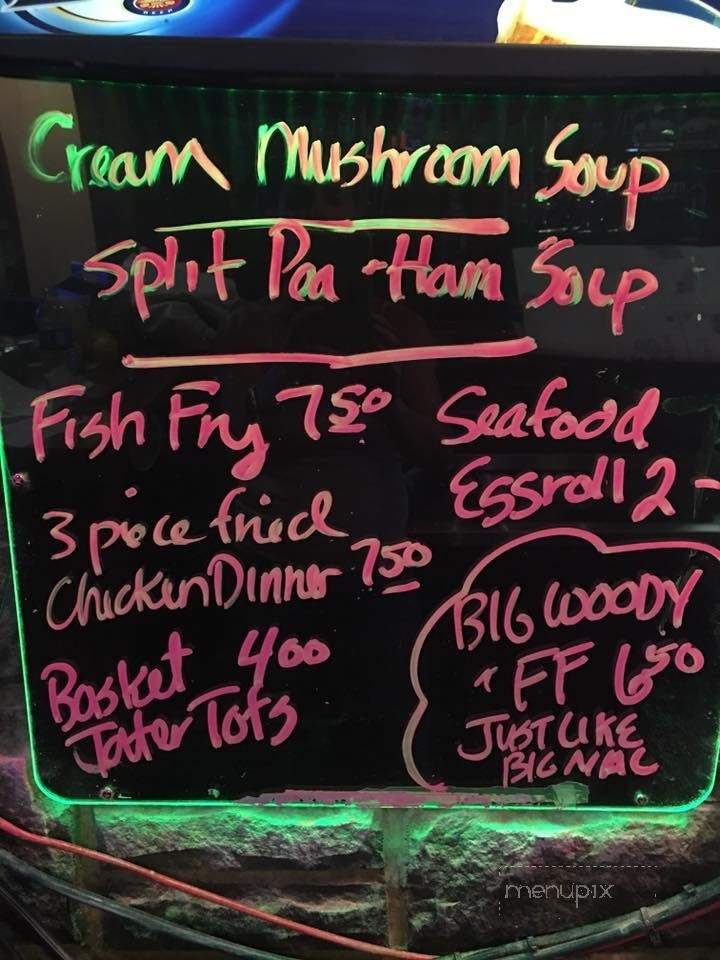 Cream Mushroom Soup
Split Pea - Ham Soup
Fish Fry 7 50
Seafood
Eggroll 2 -
3 piece fried
Chicken Dinner 7 50
Basket 4 00
Tater Tots
BIG WOODY
+ FF 6 50
JUST LIKE
BIG MAC
menupix